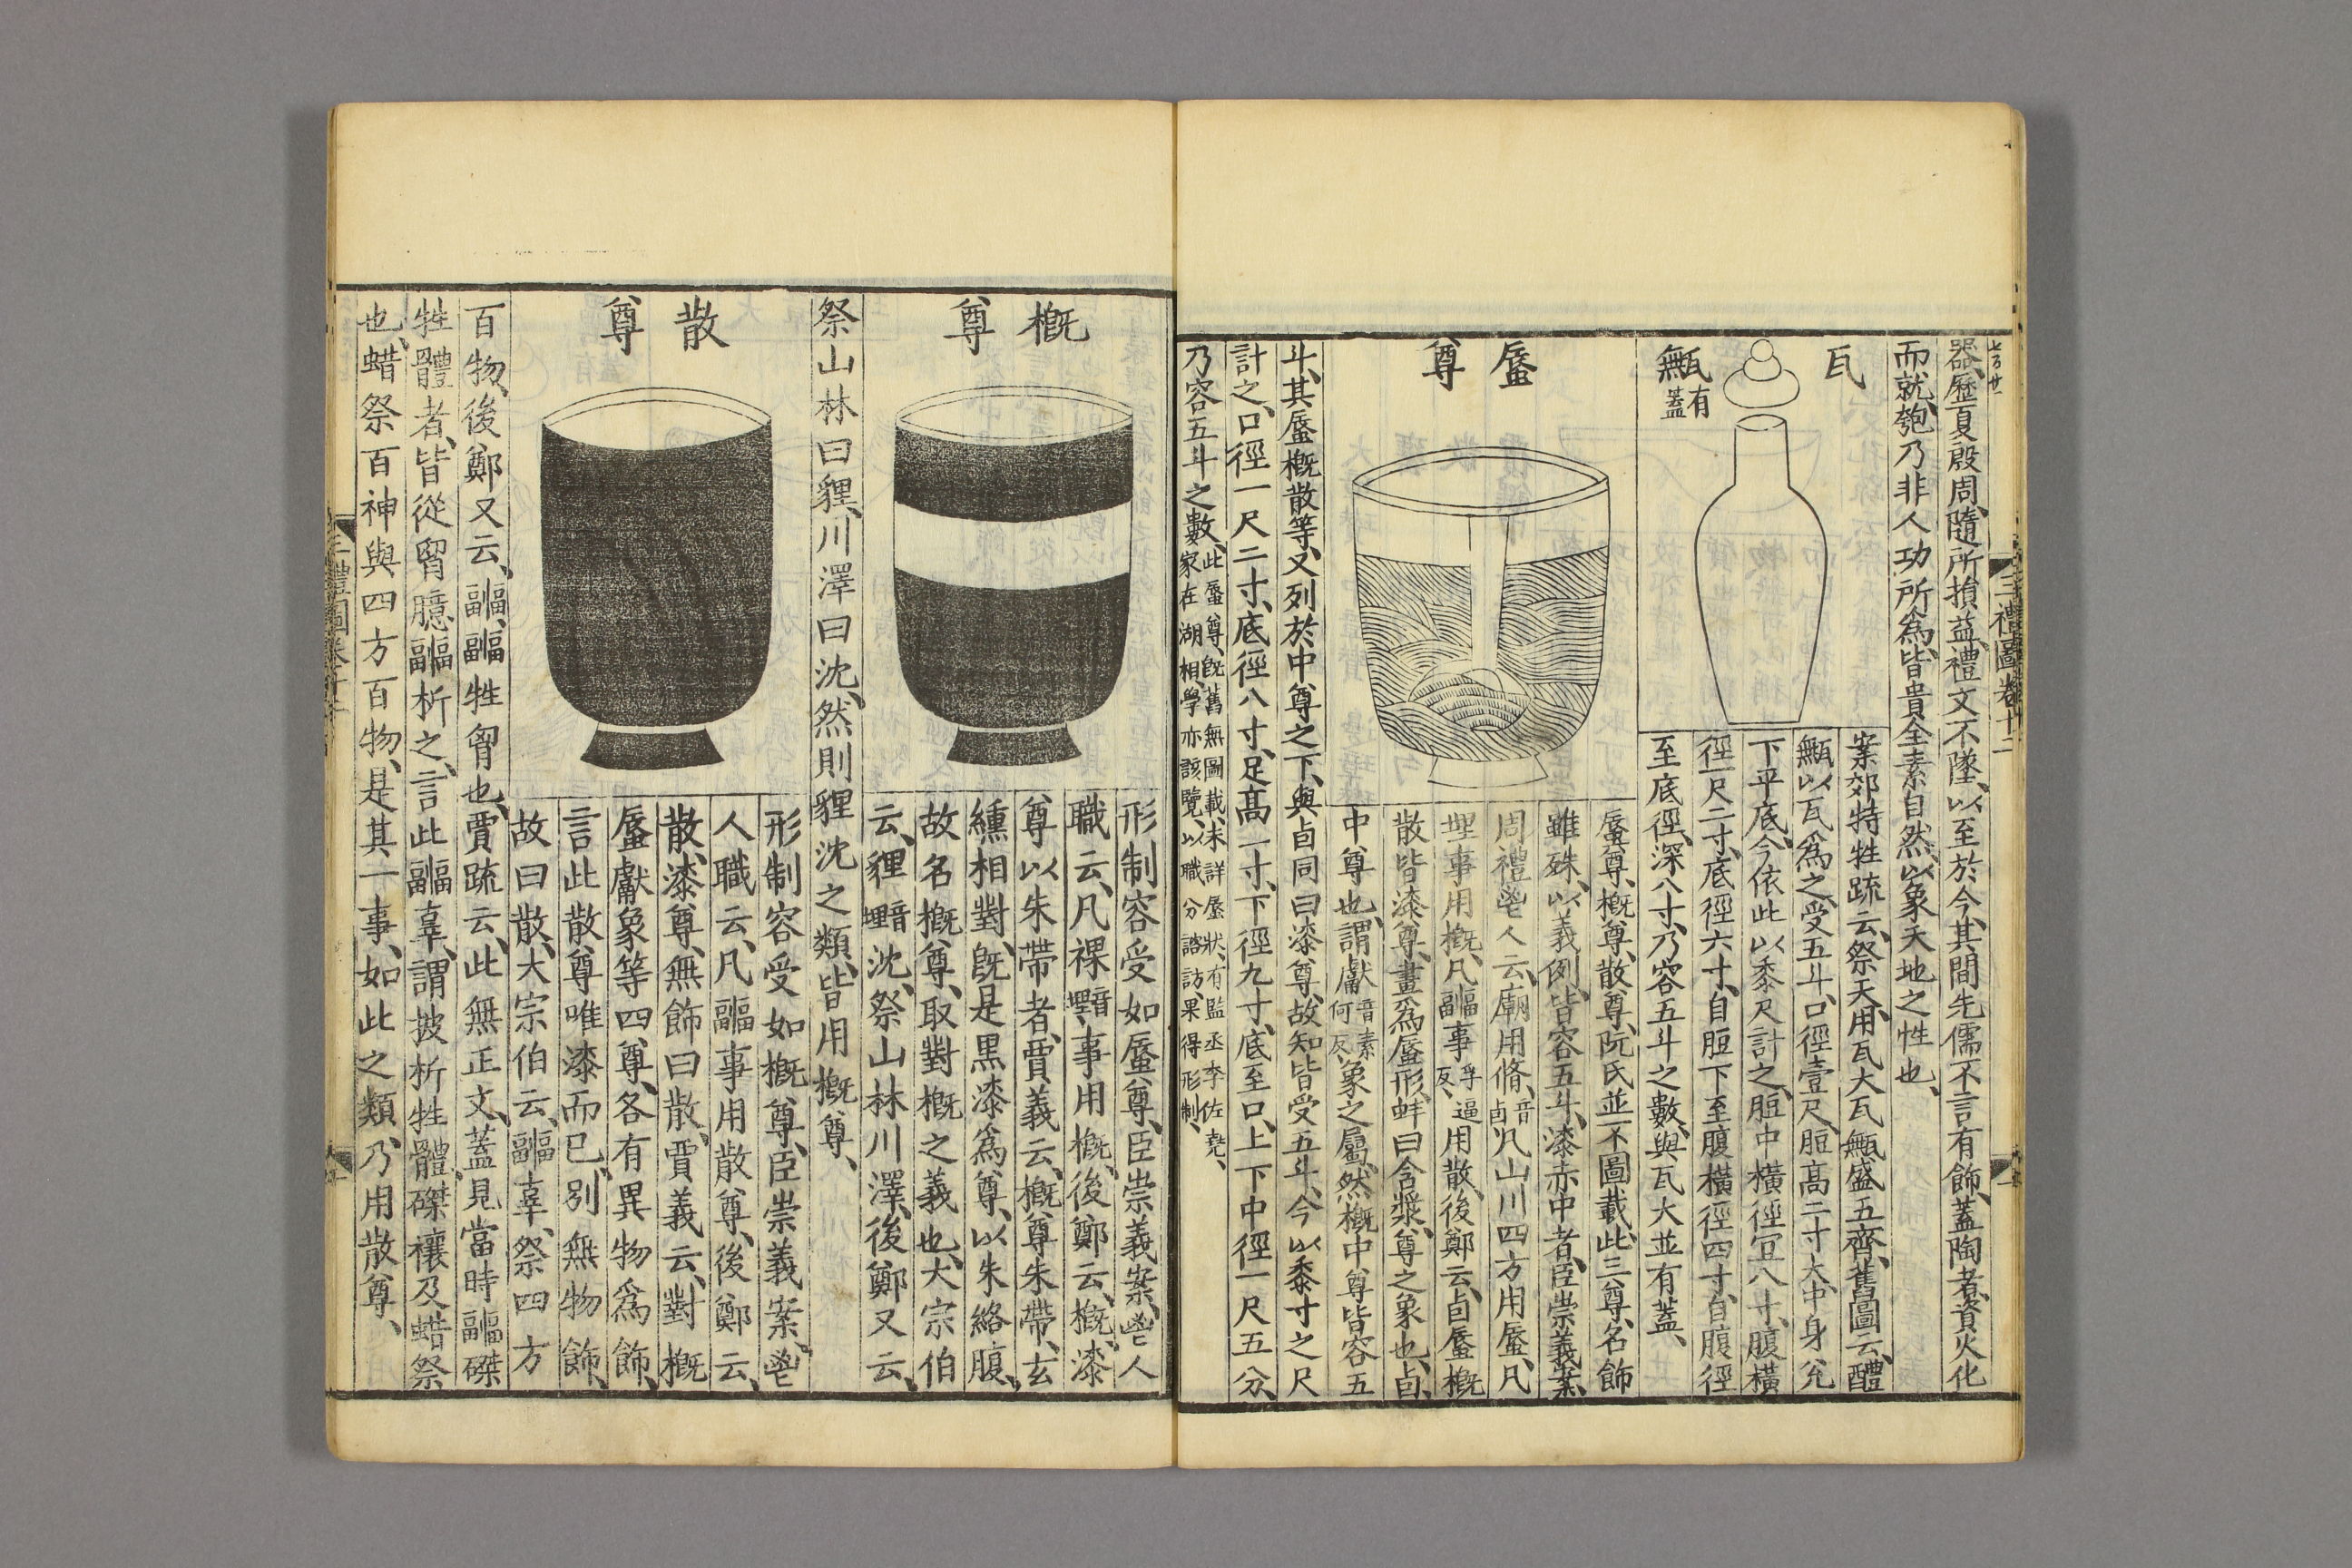 器歷夏殷周隨所損益禮文不墜以至於今其間先儒不言有飾蓋陶者資火化
而就匏乃非人功所爲皆貴全素自然以象天地之性也
瓦甒有蓋
案郊特牲疏云祭天用瓦大瓦甒盛五齊舊圖云醴
甒以瓦爲之受五斗口徑壹尺脰高二寸大中身兊
下平底今依此以黍尺計之脰中橫徑宜八寸腹橫
徑一尺二寸底徑六寸自脰下至腹橫徑四寸自腹徑
至底徑深八寸乃容五斗之數與瓦大並有蓋
蜃尊
蜃尊概尊散尊阮氏並不圖載此三尊名飾
雖殊以義例皆容五斗漆赤中者臣崇義案
周禮鬯人云廟用脩音卣凡山川四方用蜃凡
埋事用概凡疈事孚逼反用散後鄭云卣蜃概
散皆漆尊畫爲蜃形蚌曰含漿尊之象也卣
中尊也謂獻音素何反象之屬然概中尊皆容五
斗其蜃概散等又列於中尊之下與卣同曰漆尊故知皆受五斗今以黍寸之尺
計之口徑一尺二寸底徑八寸足高一寸下徑九寸底至口上下中徑一尺五分
乃容五斗之數此蜃尊既舊無圖載未詳蜃狀有監丞李佐堯家在湖相學亦該覽以職分諮訪果得形制
三禮圖卷十二
概尊
形制容受如蜃尊臣崇義案鬯人
職云凡祼音埋事用概後鄭云概漆
尊以朱帶者賈義云概尊朱帶玄
纁相對旣是黒漆爲尊以朱絡腹
故名概尊取對概之義也大宗伯
云貍音埋沈祭山林川澤後鄭又云
祭山林曰貍川澤曰沈然則貍沈之類皆用概尊
散尊
形制容受如概尊臣崇義案鬯
人職云凡疈事用散尊後鄭云
散漆尊無飾曰散賈義云對概
蜃獻象等四尊各有異物爲飾
言此散尊唯漆而已別無物飾
故曰散大宗伯云疈辜祭四方
百物後鄭又云疈疈牲胷也賈疏云此無正文蓋見當時疈磔
牲體者皆從胷臆疈析之言此疈辜謂披析牲體磔禳及蜡祭
也蜡祭百神與四方百物是其一事如此之類乃用散尊
三禮圖卷十二